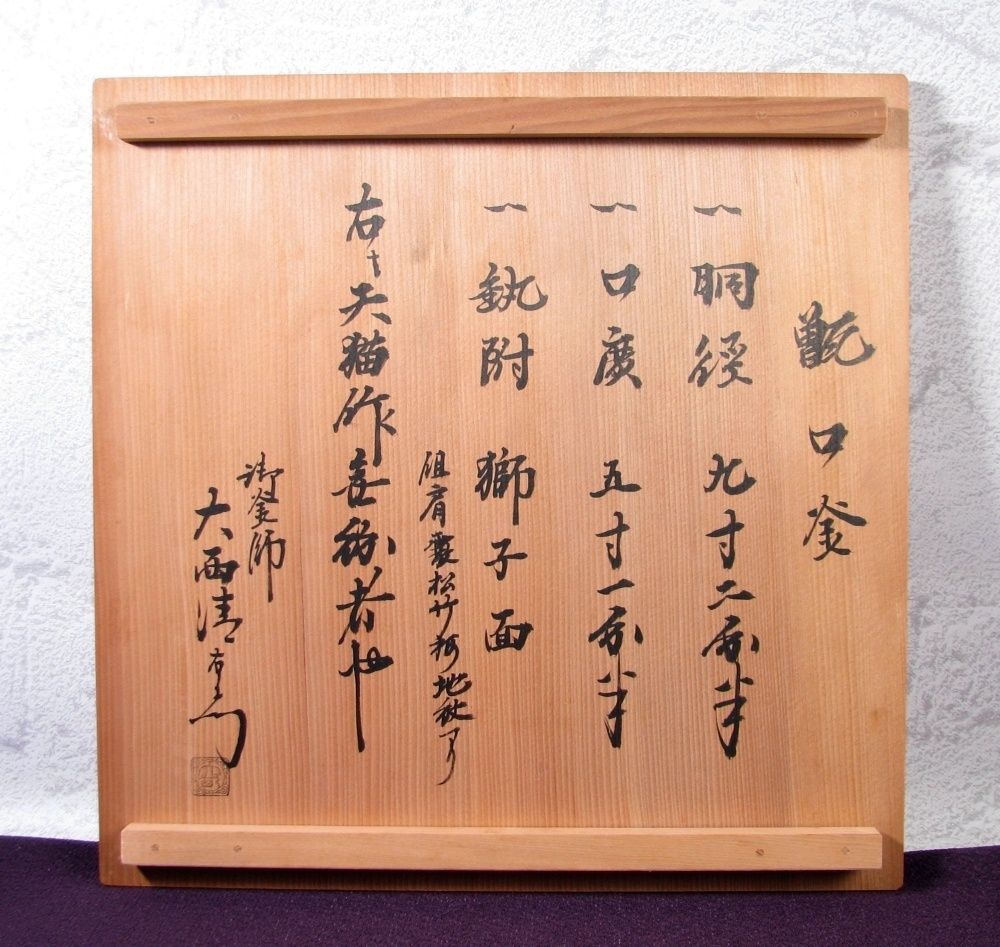 甑口釜
一 胴径 九寸二分半
一 口廣 五寸一分半
一 釻附 獅子面
但肩霰松竹梅地紋アリ
右ハ天猫作無紛者也
御釜師
大西清右衛門